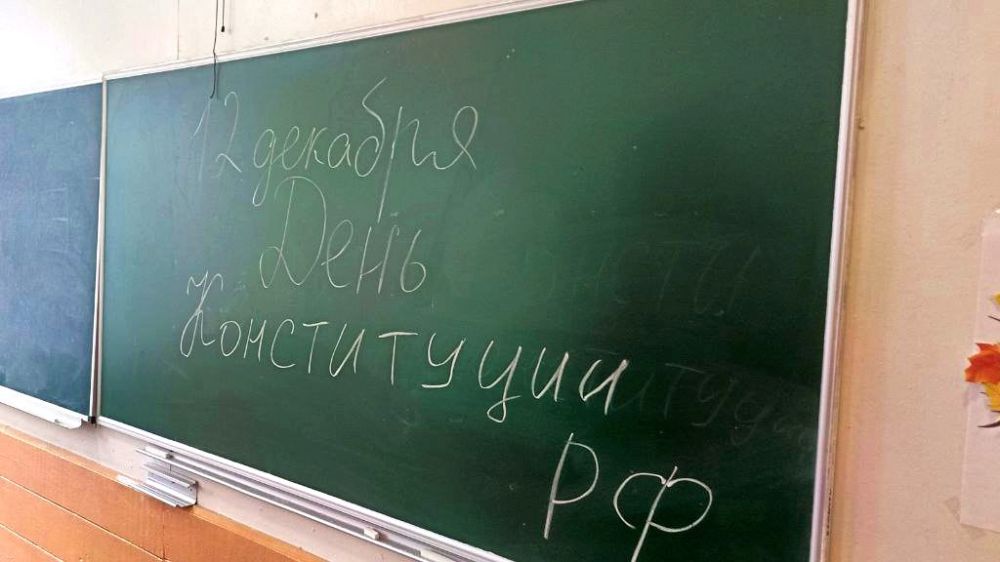 12 декабря
День
Конституции
РФ